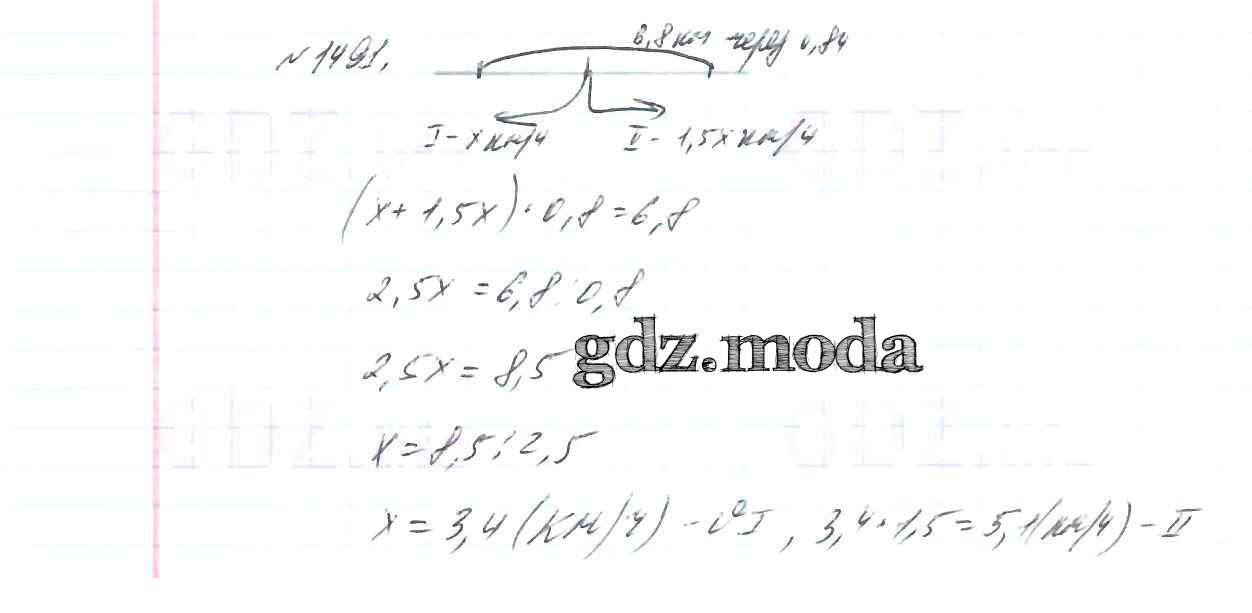 №1491.
6,8 км через 0,8ч
I - x км/ч
II - 1,5x км/ч
(x + 1,5x) · 0,8 = 6,8
2,5x = 6,8 : 0,8
2,5x = 8,5
gdz.moda
x = 8,5 : 2,5
x = 3,4 (км/ч) - v I, 3,4 · 1,5 = 5,1 (км/ч) - II